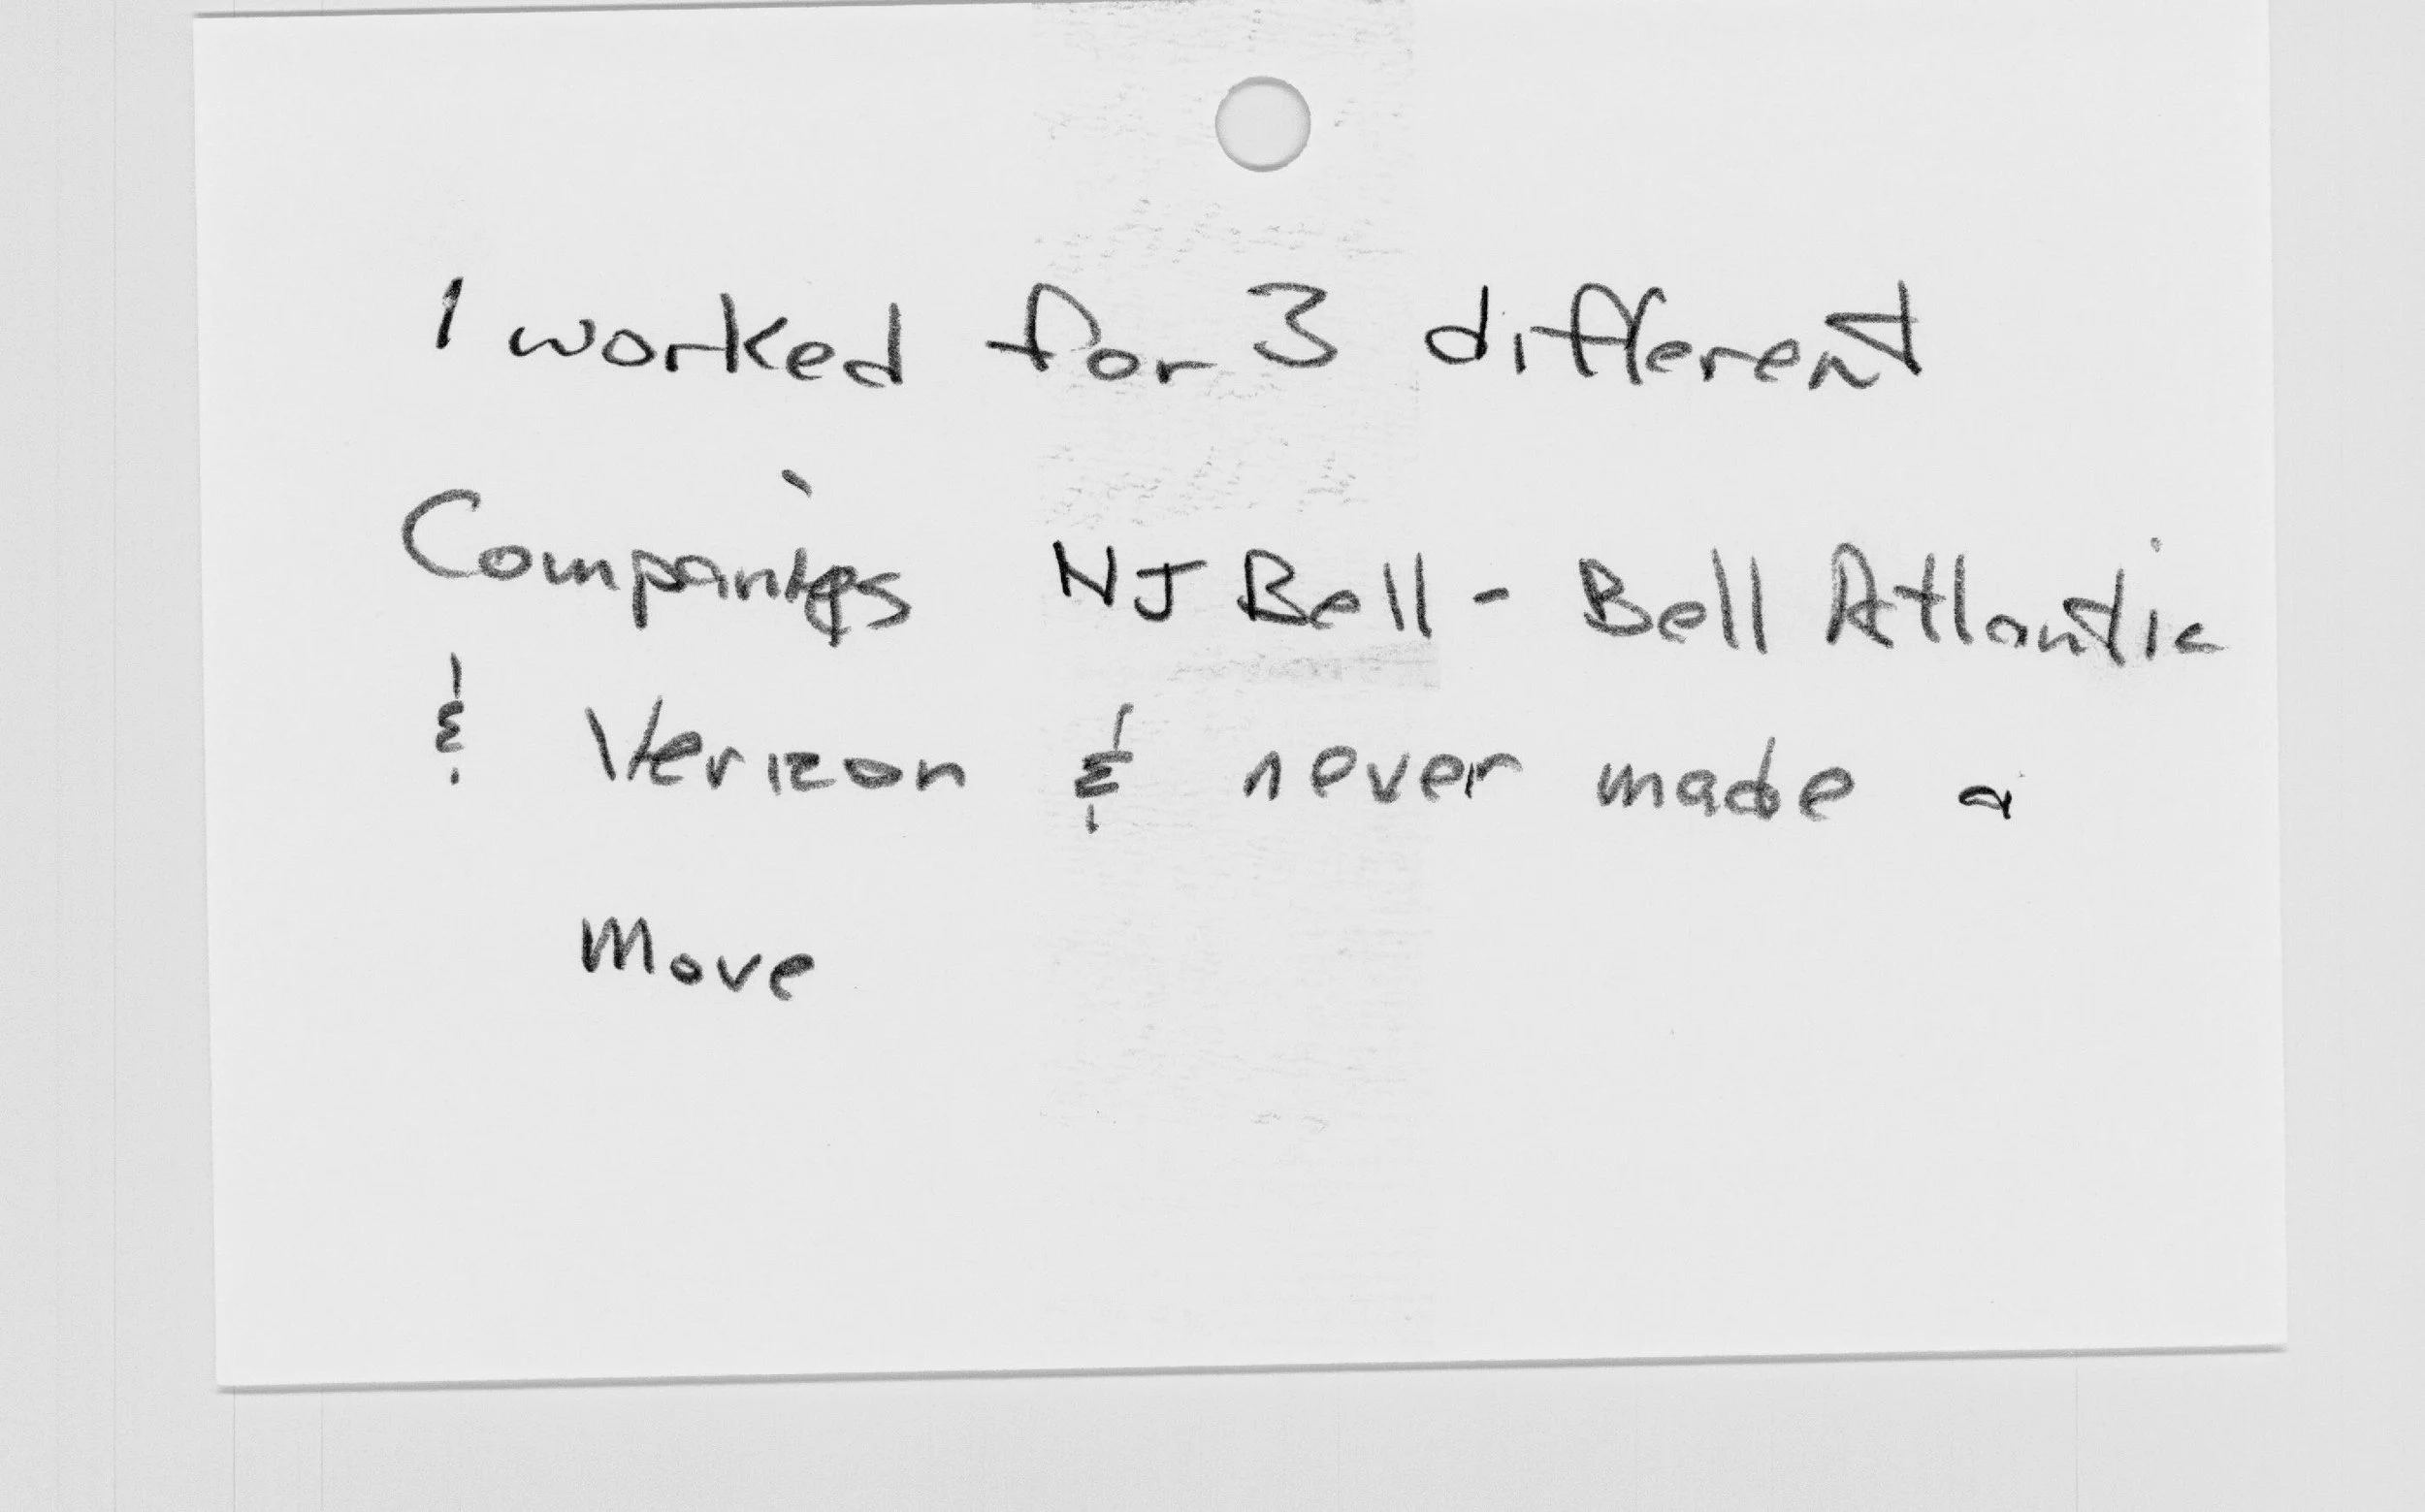 I worked for 3 different
Companies NJ Bell - Bell Atlantic
& Verizon & never made a
Move